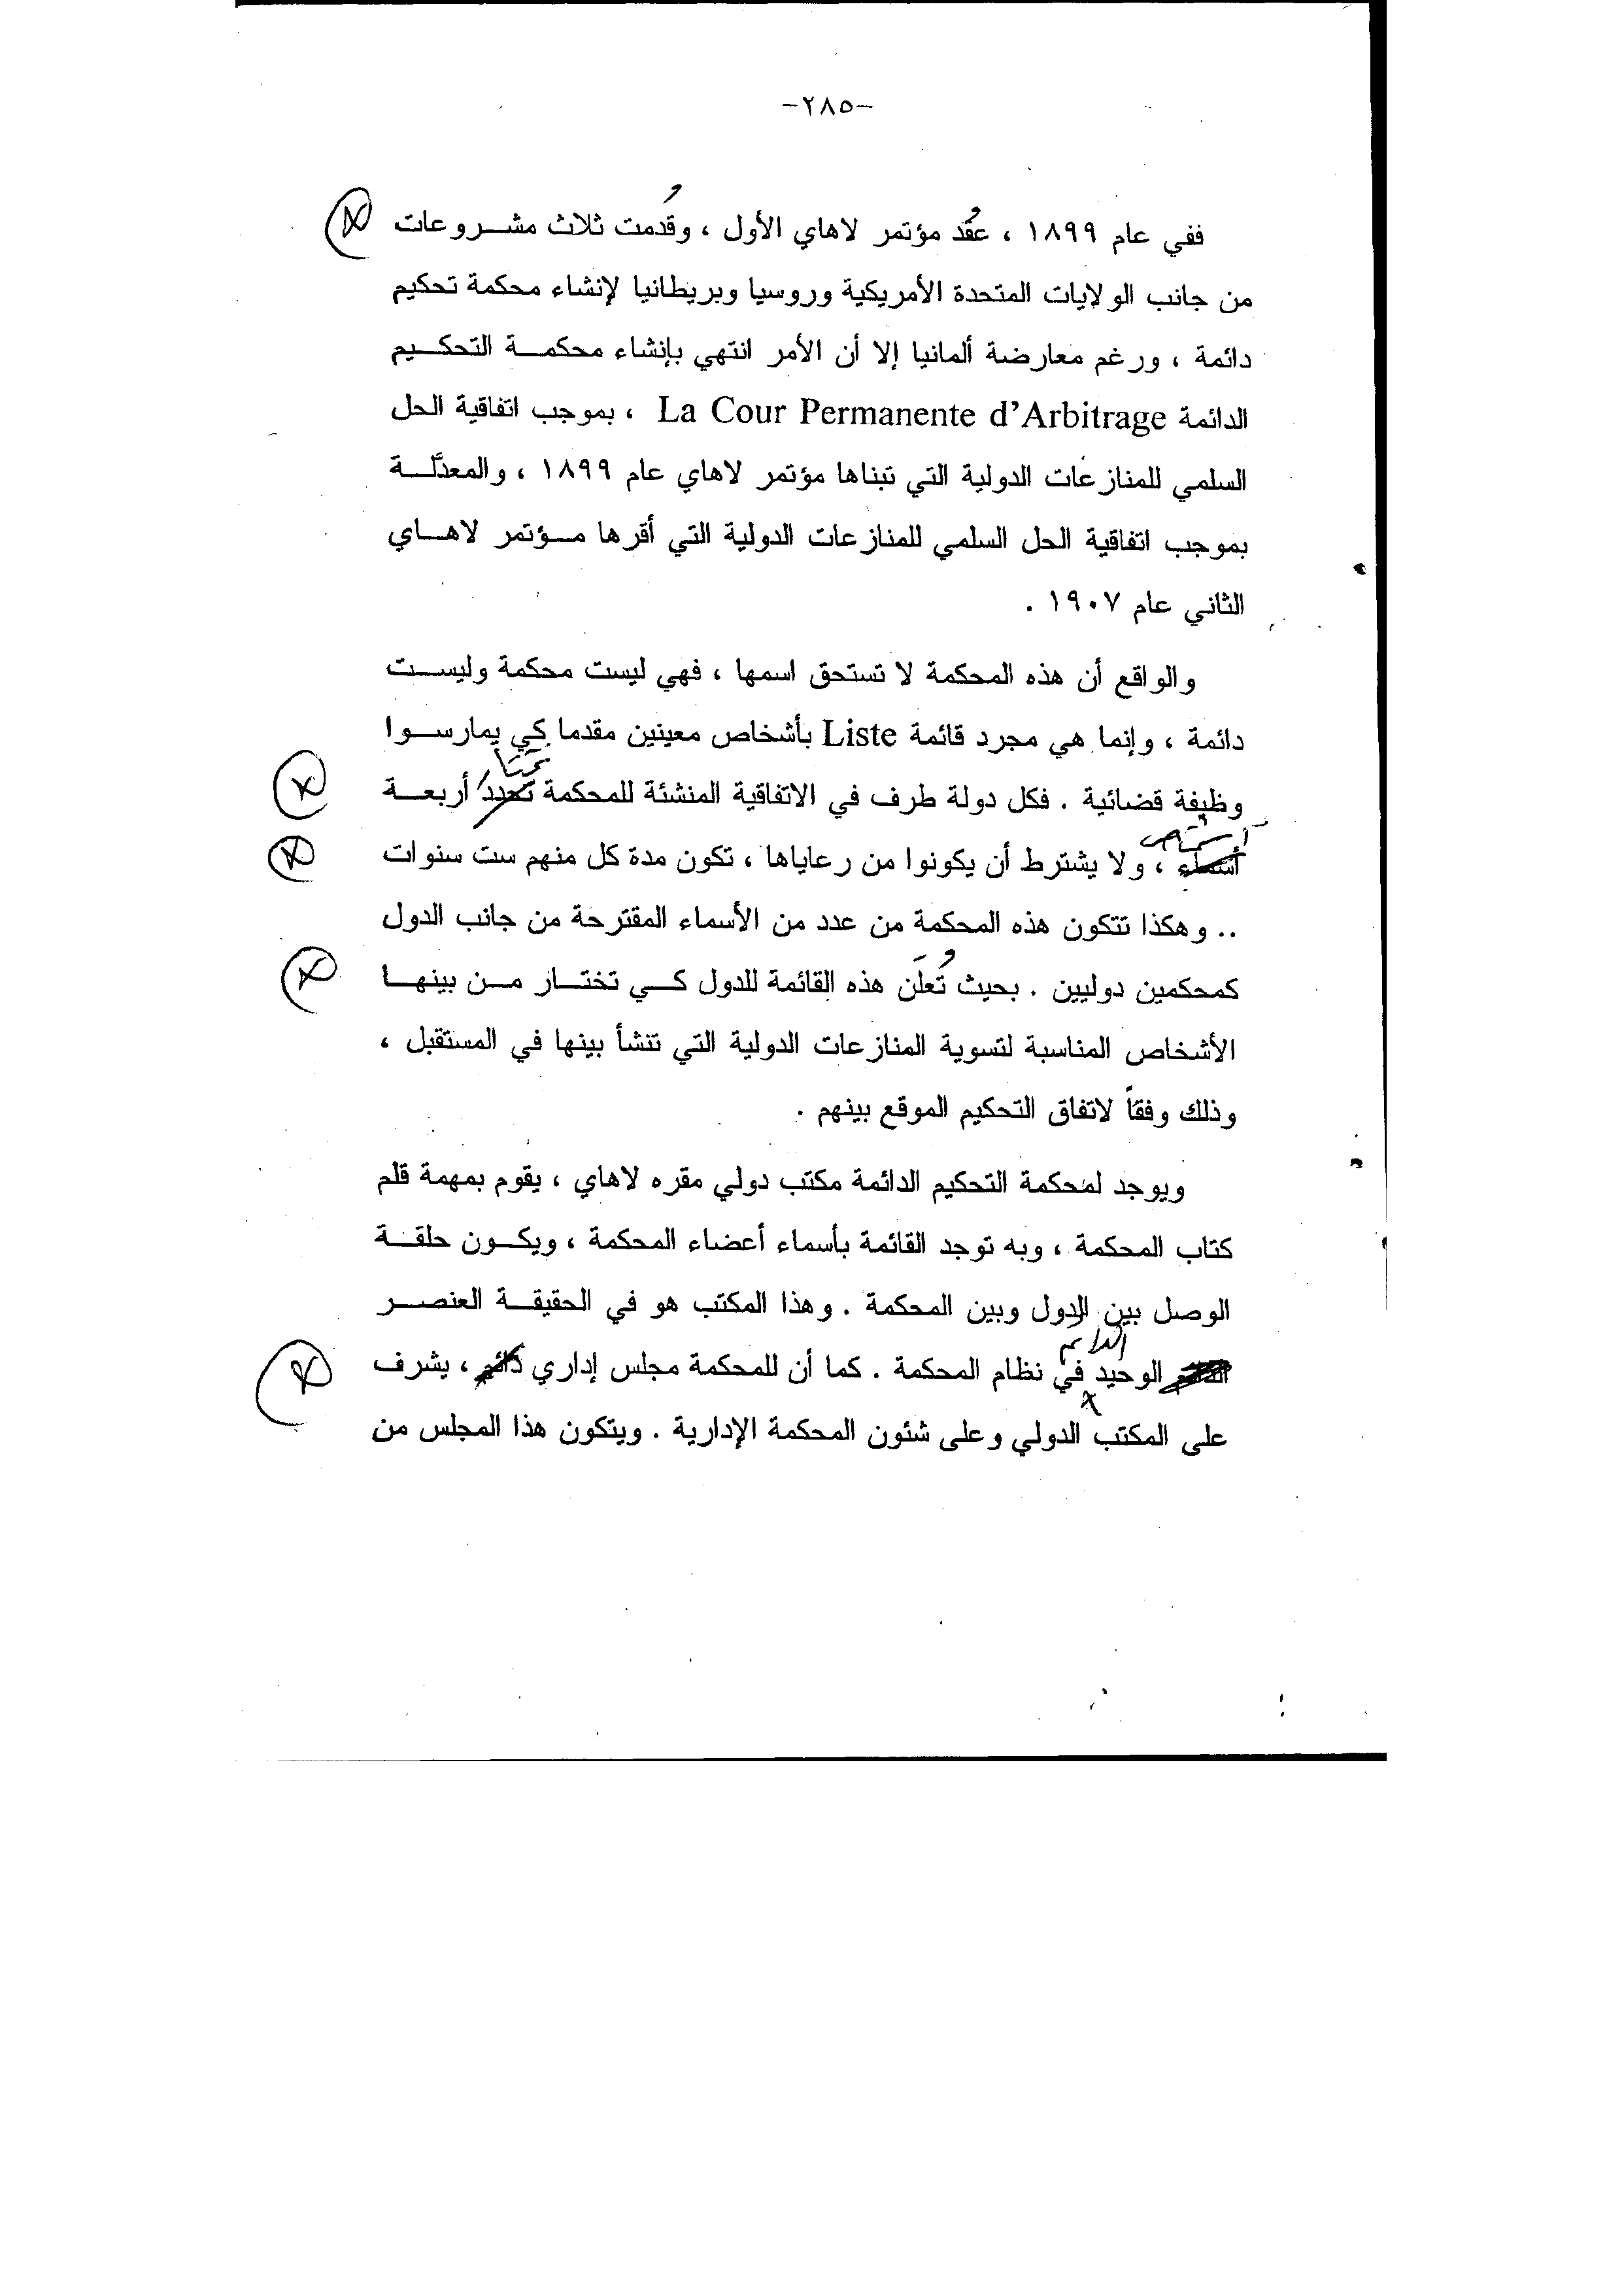 -٢٨٥-
ففي عام ١٨٩٩ ، عُقد مؤتمر لاهاي الأول ، وقُدمت ثلاث مشروعات
من جانب الولايات المتحدة الأمريكية وروسيا وبريطانيا لإنشاء محكمة تحكيم
دائمة ، ورغم معارضة ألمانيا إلا أن الأمر انتهي بإنشاء محكمة التحكيم
الدائمة La Cour Permanente d’Arbitrage ، بموجب اتفاقية الحل
السلمي للمنازعات الدولية التي تبناها مؤتمر لاهاي عام ١٨٩٩ ، والمعدَّلة
بموجب اتفاقية الحل السلمي للمنازعات الدولية التي أقرها مؤتمر لاهاي
الثاني عام ١٩٠٧ .
والواقع أن هذه المحكمة لا تستحق اسمها ، فهي ليست محكمة وليست
دائمة ، وإنما هي مجرد قائمة Liste بأشخاص معينين مقدما كي يمارسوا
تختار
وظيفة قضائية . فكل دولة طرف في الاتفاقية المنشئة للمحكمة تحدد أربعة
أشخاص
أسماء ، ولا يشترط أن يكونوا من رعاياها ، تكون مدة كل منهم ست سنوات
.. وهكذا تتكون هذه المحكمة من عدد من الأسماء المقترحة من جانب الدول
كمحكمين دوليين . بحيث تُعلَن هذه القائمة للدول كي تختار من بينها
الأشخاص المناسبة لتسوية المنازعات الدولية التي تنشأ بينها في المستقبل ،
وذلك وفقاً لاتفاق التحكيم الموقع بينهم .
ويوجد لمحكمة التحكيم الدائمة مكتب دولي مقره لاهاي ، يقوم بمهمة قلم
كتاب المحكمة ، وبه توجد القائمة بأسماء أعضاء المحكمة ، ويكون حلقة
الوصل بين الدول وبين المحكمة . وهذا المكتب هو في الحقيقة العنصر
الدائم
الوحيد في نظام المحكمة . كما أن للمحكمة مجلس إداري دائم ، يشرف
على المكتب الدولي وعلى شئون المحكمة الإدارية . ويتكون هذا المجلس من